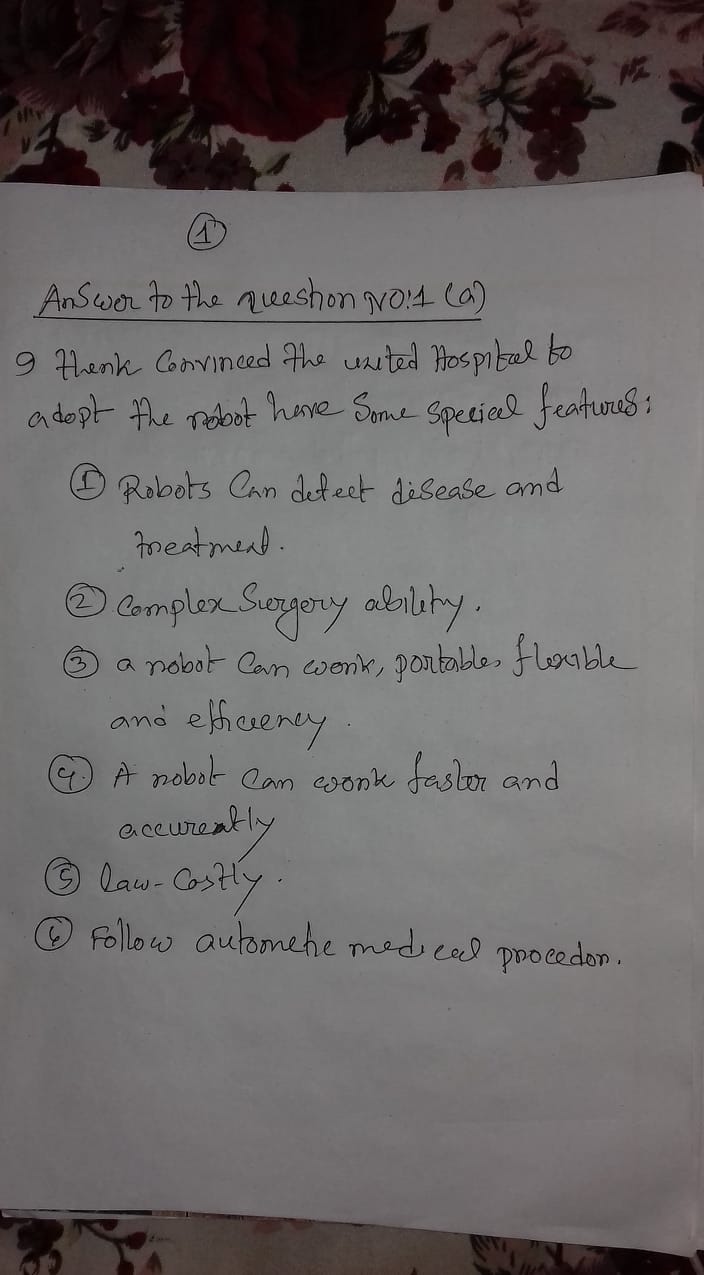 1
Answer to the question NO:1 (a)
I think Convinced the united Hospital to
adopt the robot have Some Special features:
① Robots Can detect disease and
treatment.
② Complex Surgery ability.
③ a robot Can work, portable, flexible
and efficiency.
④ A robot Can work faster and
accurently
⑤ law-Costly.
⑥ Follow automatic medical procedor.